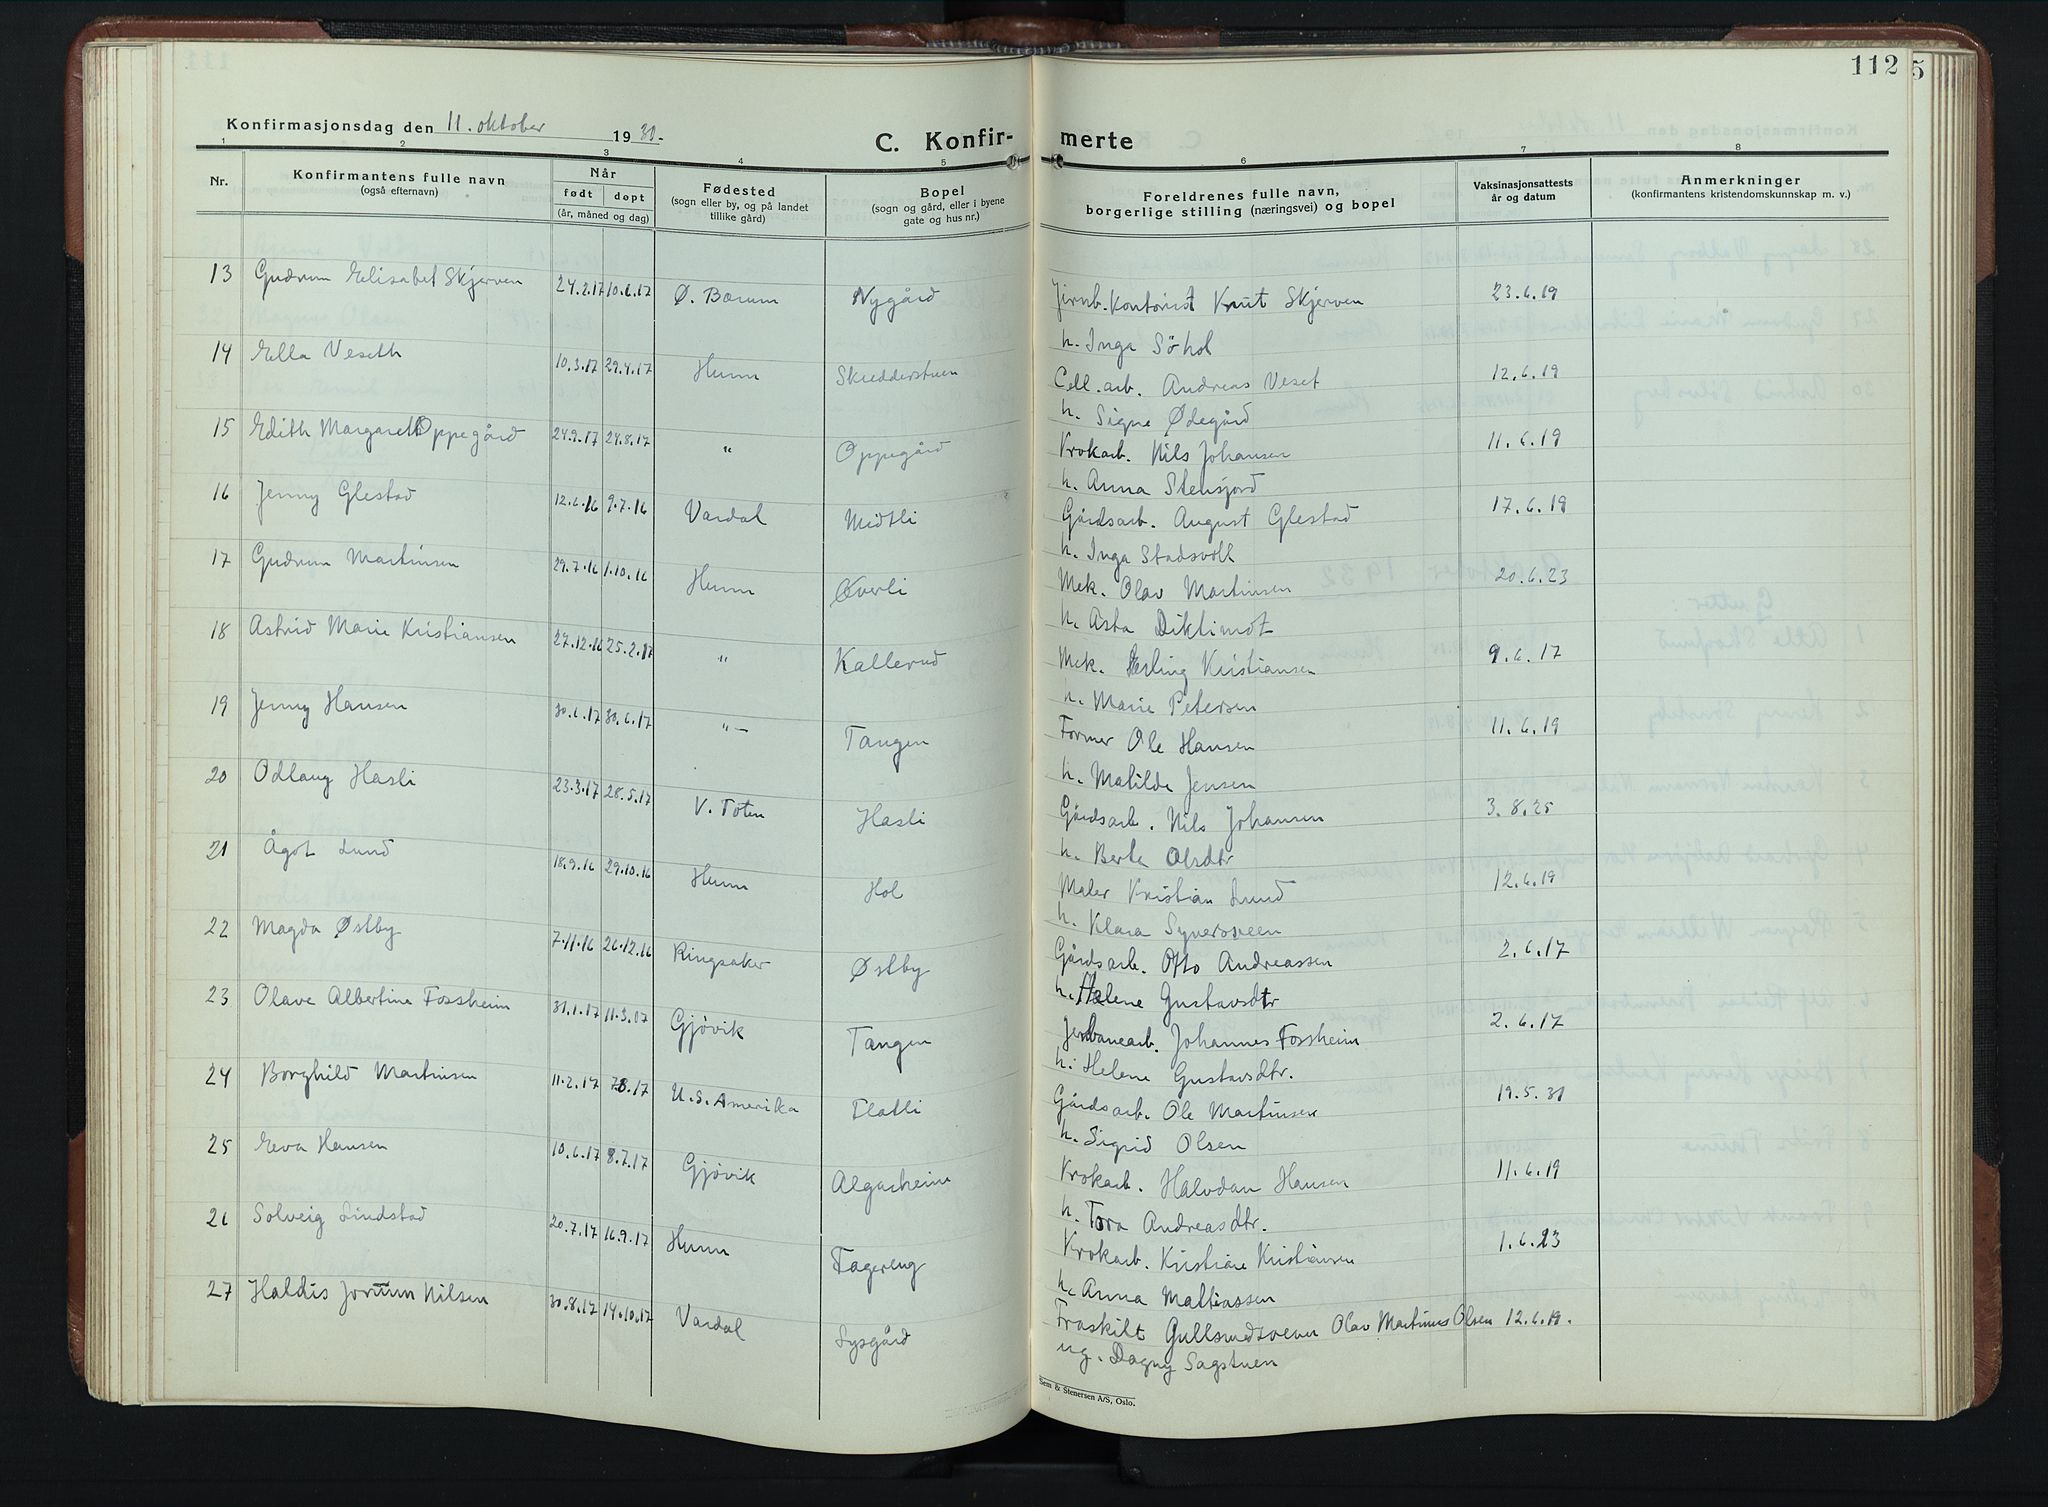 112
5
Konfirmasjonsdag den 11. oktober 1931.
C. Konfir- merte
1 2 3 4 5 6 7 8
Nr.
Konfirmantens fulle navn
(også efternavn)
Når
født døpt
(år, måned og dag)
Fødested
(sogn eller by, og på landet
tillike gård)
Bopel
(sogn og gård, eller i byene
gate og hus nr.)
Foreldrenes fulle navn,
borgerlige stilling (næringsvei) og bopel
Vaksinasjonsattests
år og datum
Anmerkninger
(konfirmantens kristendomskunnskap m. v.)
13 Gudrun Elisabet Skjerven 24.2.17 10.6.17 Ø. Bærum Nygård Jernb. kontorist Knut Skjerven 23.6.19
h. Inga Söhol
14 Ella Veseth 10.3.17 29.4.17 Hunn Skredderstuen Cell. arb. Andreas Veset 12.6.19
h. Signe Ødegård
15 Edith Margareth Oppegård 24.9.17 24.8.17 " Oppegård Krokarb. Nils Johansen 11.6.19
h. Anna Stensjord
16 Jenny Glestad 12.6.16 9.7.16 Vardal Midtli Gårdsarb. August Glestad 17.6.19
h. Inga Stadsvoll
17 Gudrun Martinsen 29.7.16 1.10.16 Hunn Øverli Mek. Olav Martinsen 20.6.23
h. Asta
18 Astrid Marie Kristiansen 27.12.16 25.2.17 " Kallerud Mek. Erling Kristiansen 9.6.17
h. Marie Petersen
19 Jenny Hansen 30.6.17 "- Tangen Former Ole Hansen 11.6.19
h. Matilde Jensen
20 Odlaug Hasli 23.3.17 28.5.17 V. Toten Hasli Gårdsarb. Nils Johansen 3.8.25
h. Berte Olsdtr
21 Ågot Lund 18.9.16 29.10.16 Hunn Hol Maler Kristian Lund 12.6.19
h. Klara Syversveen
22 Magda Østby 7.11.16 26.12.16 Ringsaker Østby Gårdsarb. Otto Andreassen 2.6.17
h. Helene Gustavsdtr
23 Olave Albertine Fossheim 31.1.17 11.3.17 Gjövik Tangen Jernbanearb. Johannes Fossheim 2.6.17
h: Helene Gustavsdtr.
24 Borghild Martinsen 11.2.17 U.S. Amerika Flatli Gårdsarb. Ole Martinsen 19.5.31
h. Sigrid Olsen
25 Eva Hansen 10.6.17 8.7.17 Gjövik Algarheim Krokarb. Halvdan Hansen 11.6.19
h. Tora Andreasdtr.
26 Solveig Lindstad 20.7.17 16.9.17 Hunn Fagereng Krokarb. Kristian Kristiansen 1.6.23
h. Anna Mattiassen
27 Haldis Jorunn Nilsen 30.8.17 14.10.17 Vardal Sysgård Fraskilt Olav Martinus Olsen 12.6.19.
ug. Dagny Sagstuen
Sem & Stenersen A/S, Oslo.